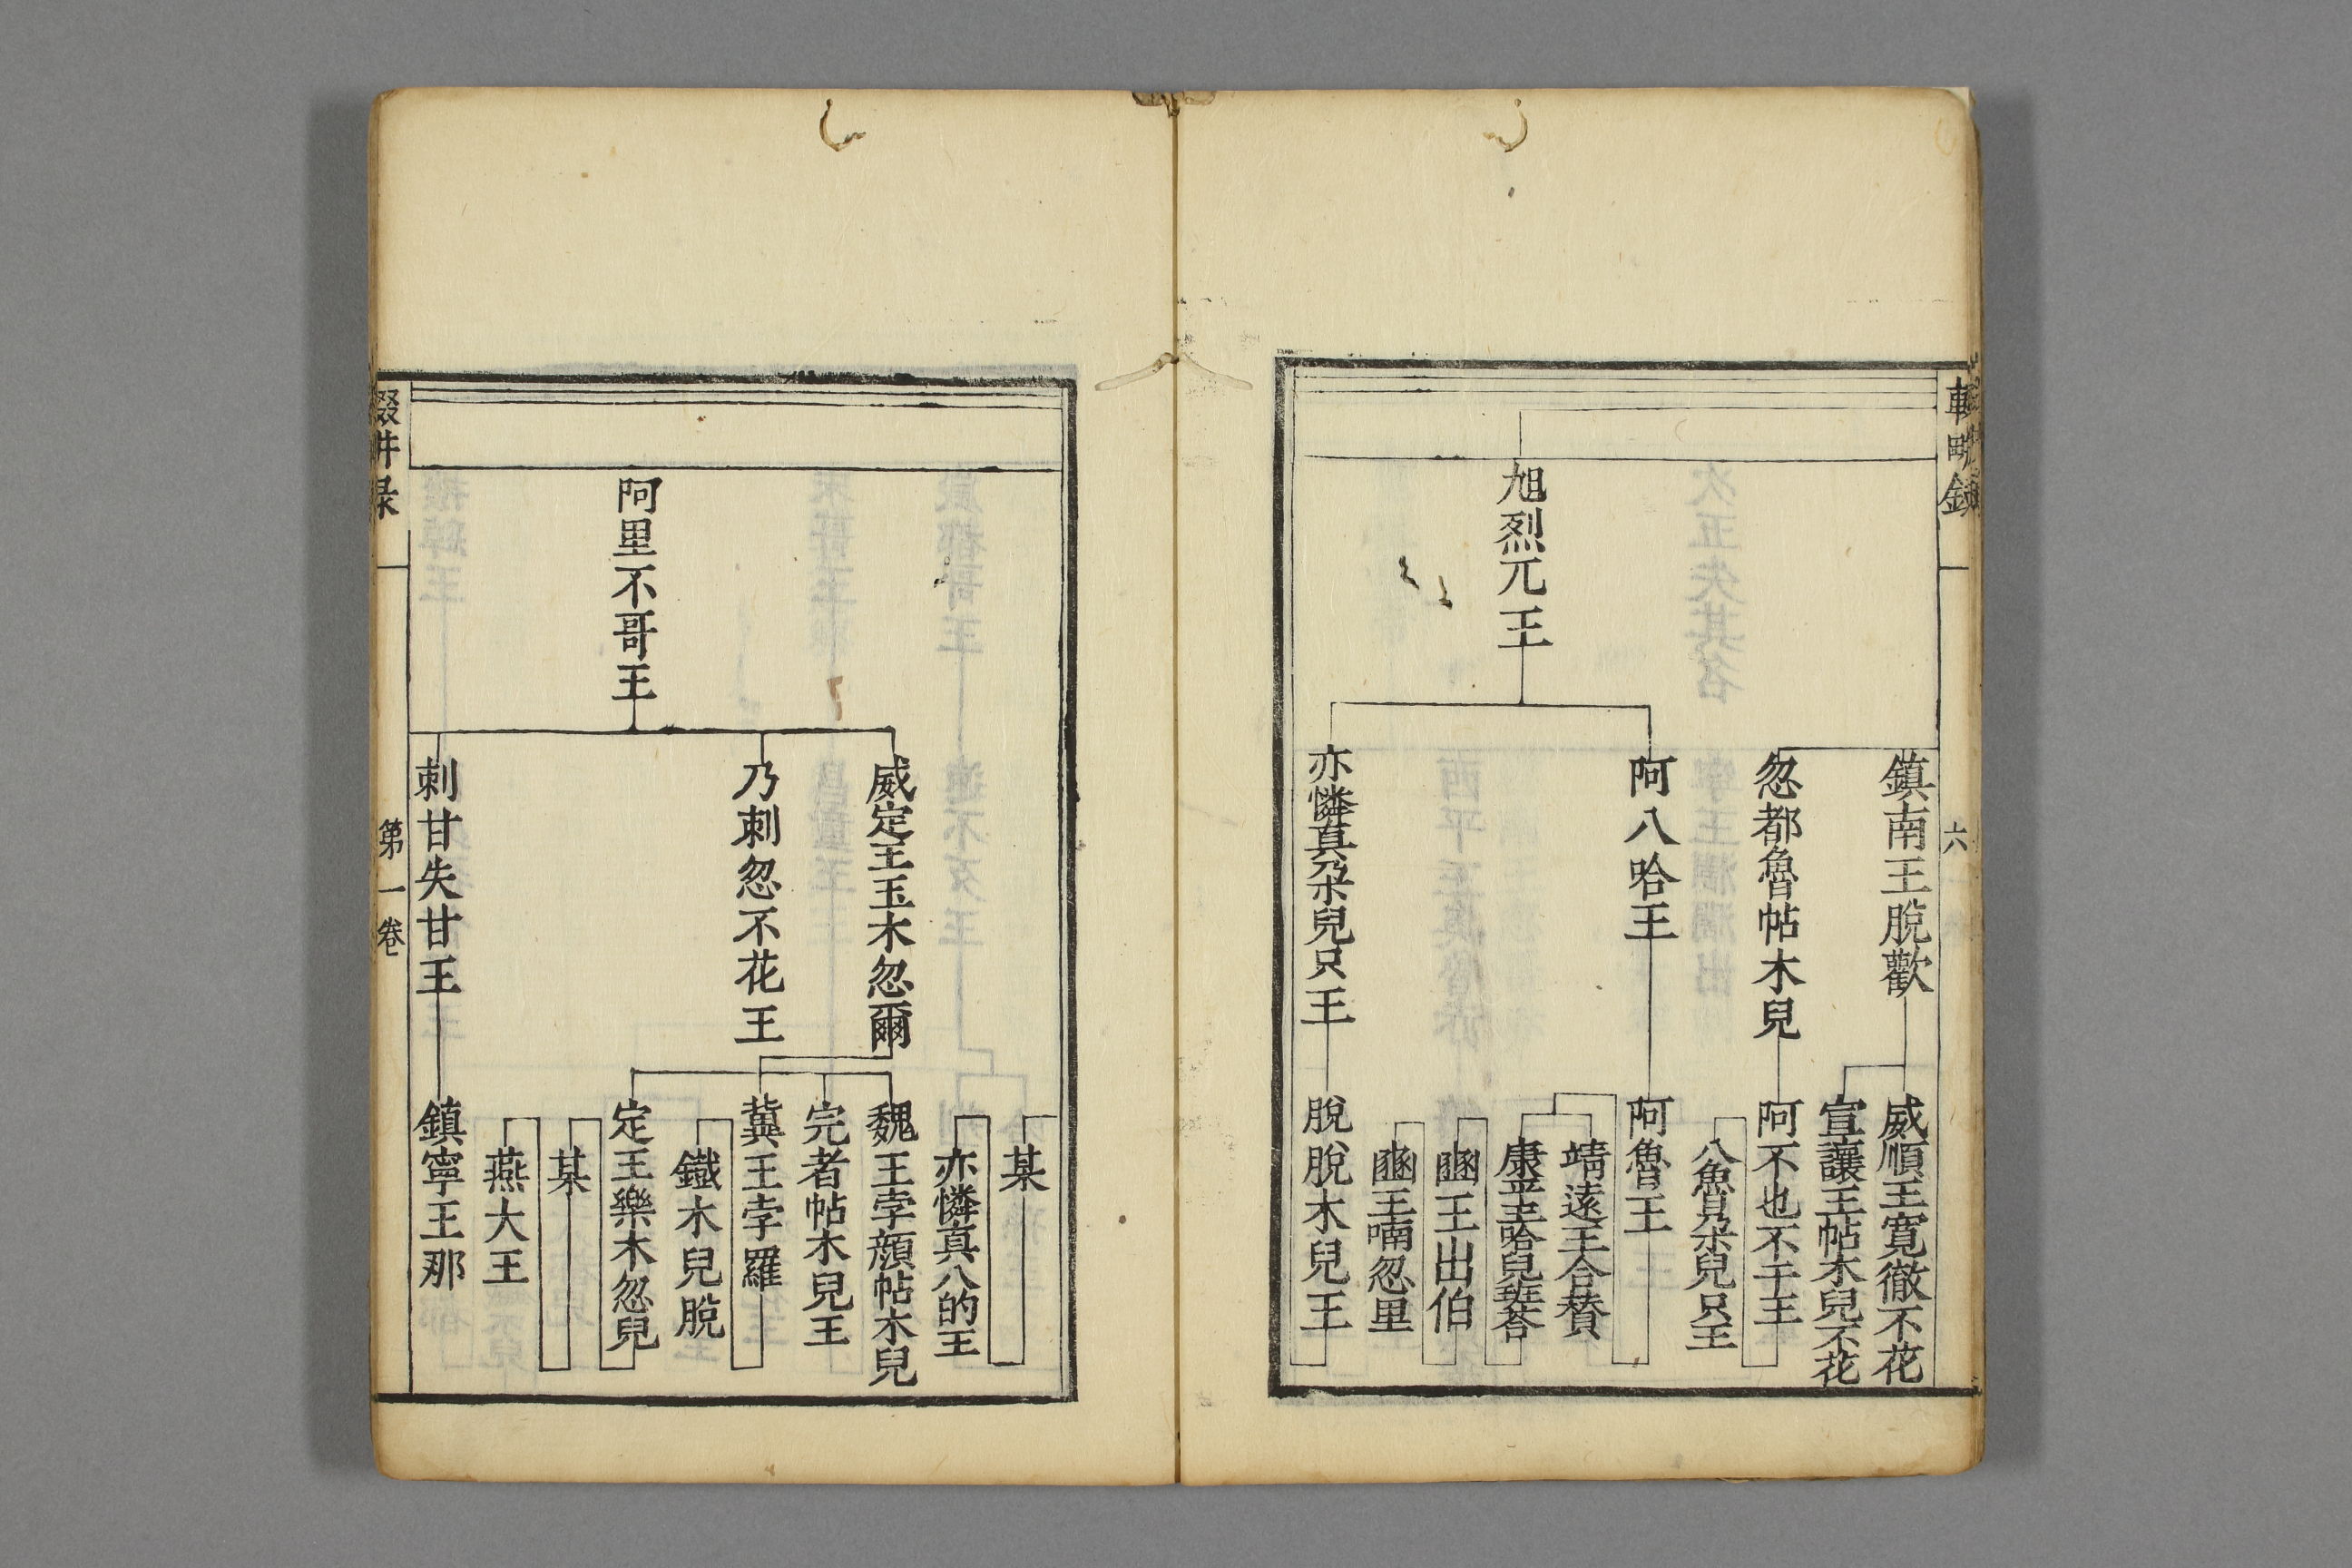 六
旭烈兀王
鎮南王脫歡
忽都魯帖木兒
阿八哈王
亦憐真朵兒只王
威順王寛徹不花
宣讓王帖木兒不花
阿不也不干王
八魯朵兒只王
阿魯王
靖遠王合贊
康王哈兒班荅
豳王出伯
豳王喃忽里
脫脫木兒王
阿里不哥王
威定王玉木忽爾
乃刺忽不花王
刺甘失甘王
某
亦憐真八的王
魏王孛顔帖木兒
完者帖木兒王
冀王孛羅
鐵木兒脫
定王樂木忽兒
某
燕大王
鎮寧王那
第一卷